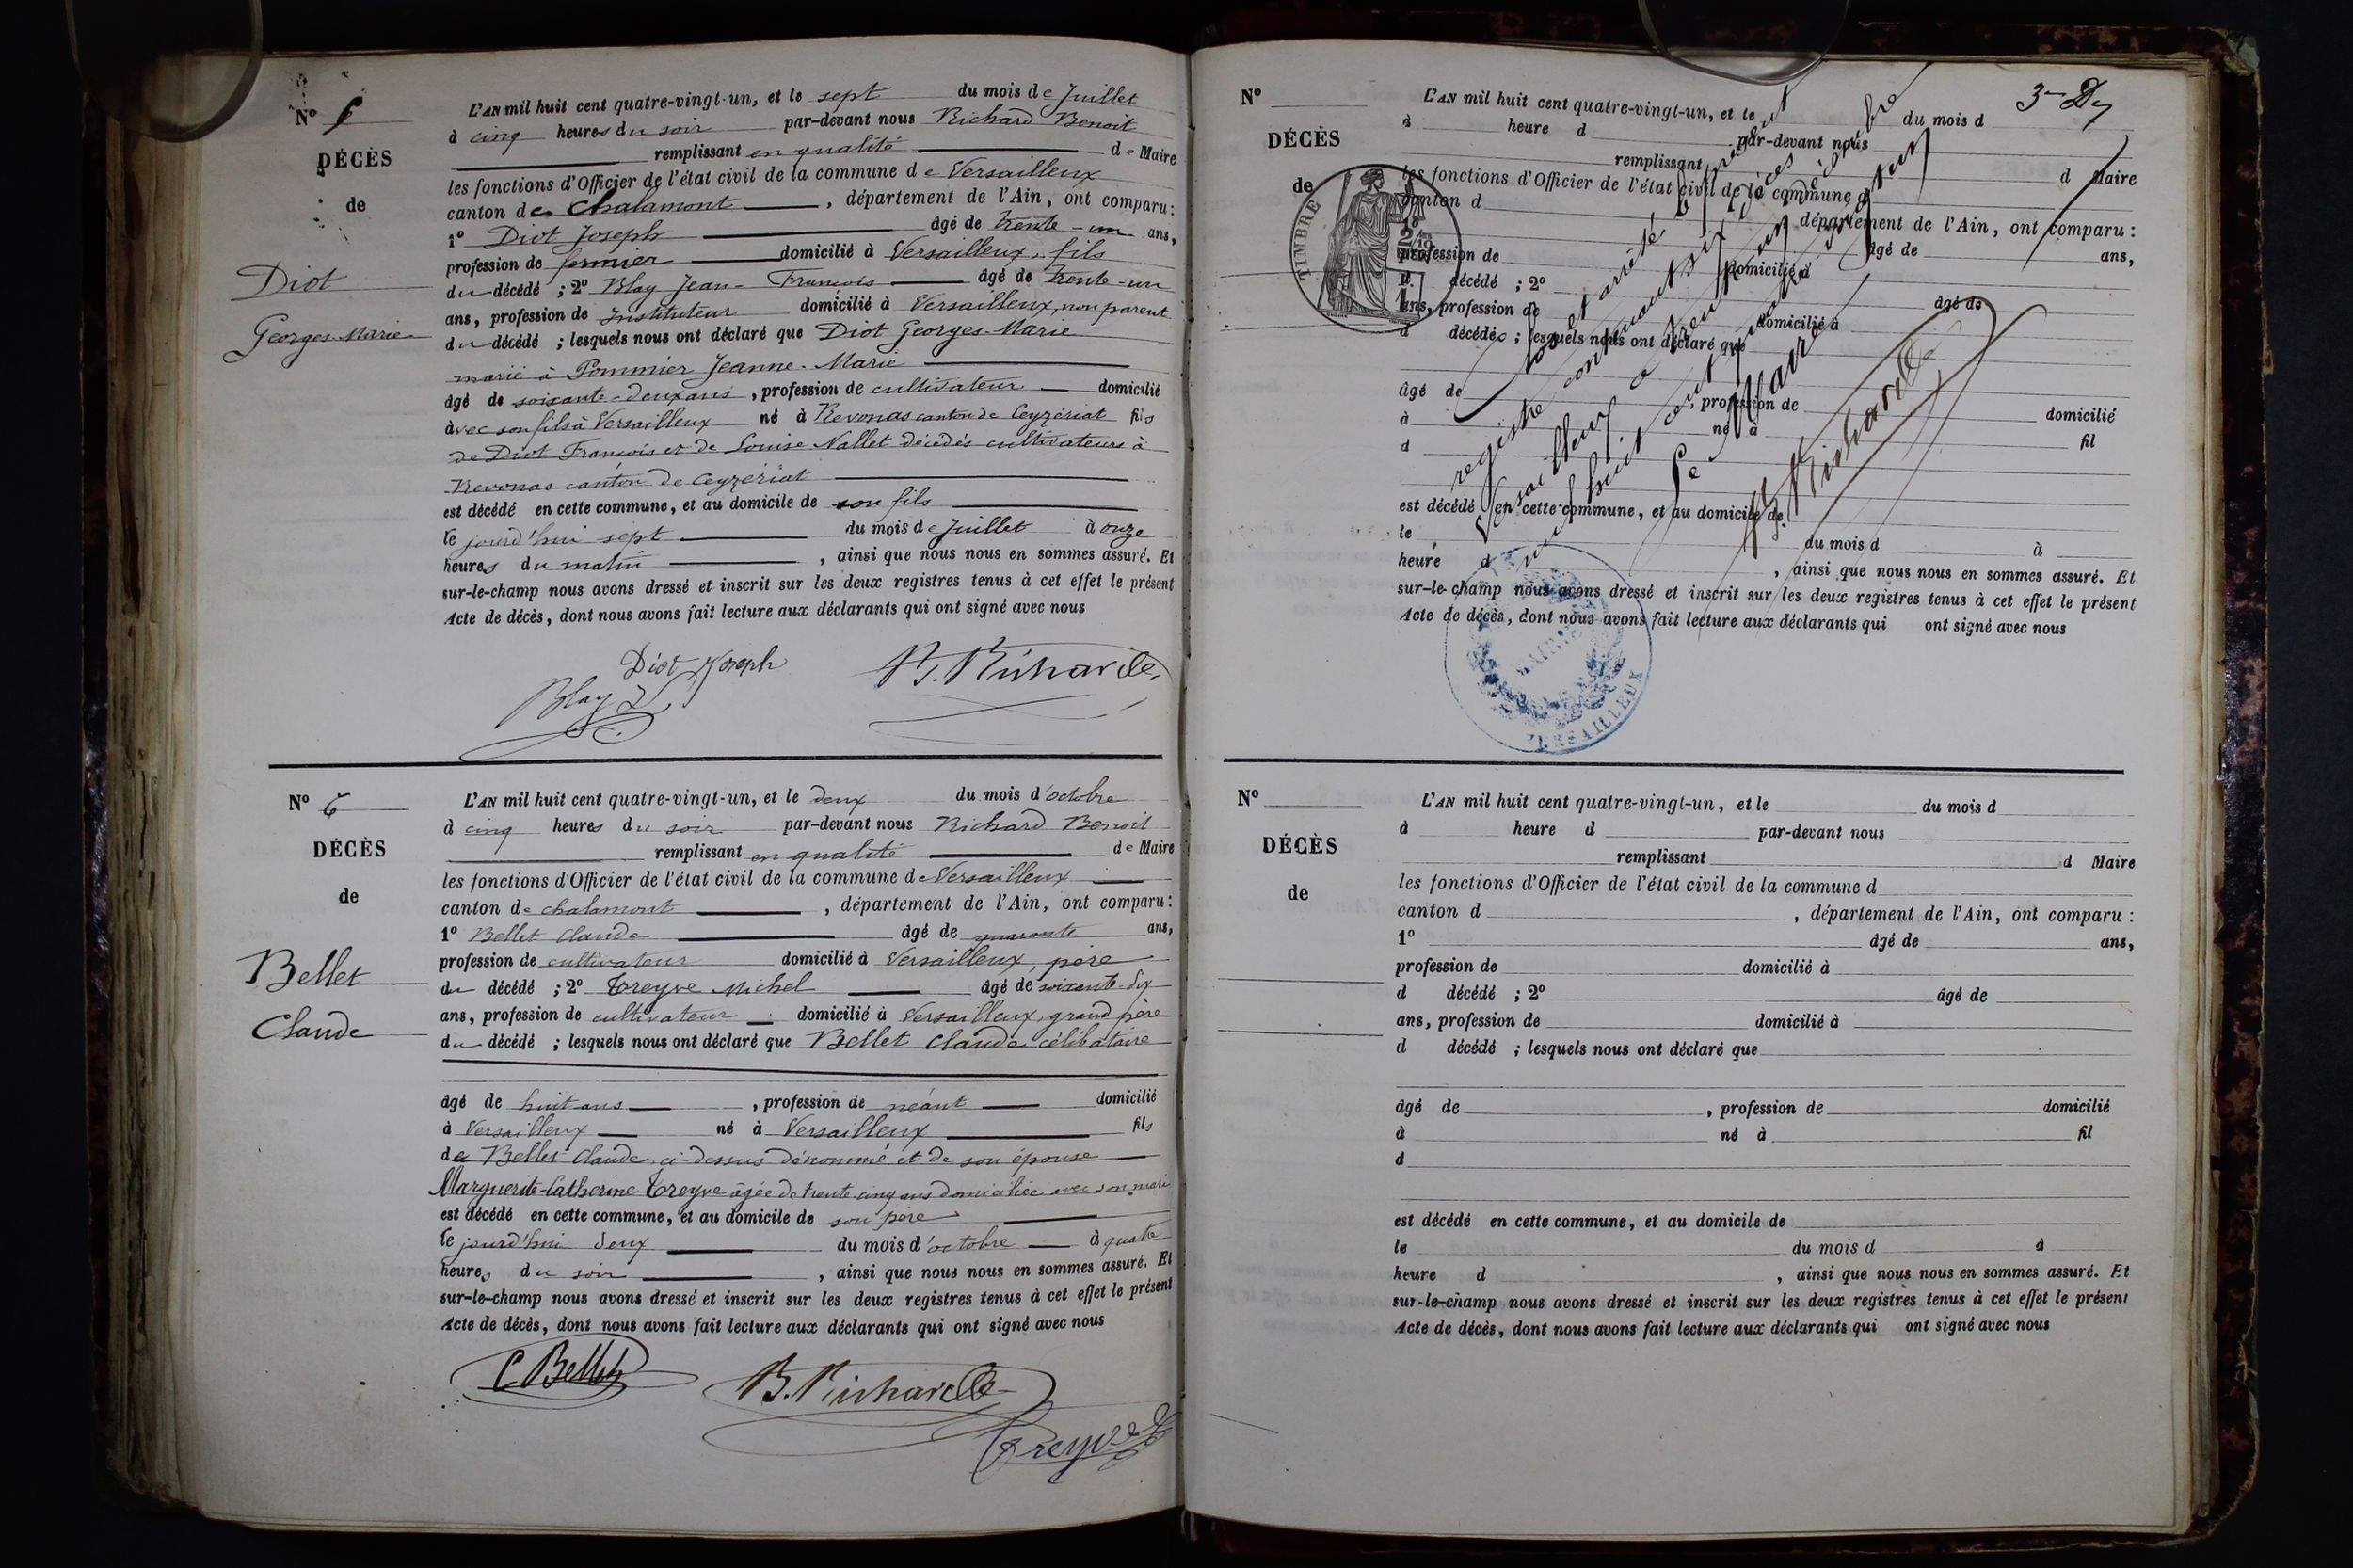 N° 5
DÉCÈS
de
Diot
Georges-Marie
L'AN mil huit cent quatre-vingt-un, et le sept du mois de Juillet
à cinq heures du soir par-devant nous Richard Benoit
remplissant en qualité de Maire
les fonctions d'Officier de l'état civil de la commune de Versailleux
canton de Chalamont, département de l'Ain, ont comparu:
1° Diot Joseph âgé de trente-un ans,
profession de fermier domicilié à Versailleux, fils
du décédé ; 2° Blay Jean-François âgé de trente-un
ans, profession de Instituteur domicilié à Versailleux, non parent
du décédé ; lesquels nous ont déclaré que Diot Georges-Marie
marié à Pommier Jeanne-Marie
âgé de soixante-deux ans, profession de cultivateur domicilié
avec son fils à Versailleux né à Revonas canton de Ceyzériat fils
de Diot François et de Louise Nallet décédés cultivateurs à
Revonas canton de Ceyzériat
est décédé en cette commune, et au domicile de son fils
le jourd'hui sept du mois de Juillet à onze
heures du matin, ainsi que nous nous en sommes assuré. Et
sur-le-champ nous avons dressé et inscrit sur les deux registres tenus à cet effet le présent
Acte de décès, dont nous avons fait lecture aux déclarants qui ont signé avec nous
Diot Joseph
B. Richard
Blay
N° 6
DÉCÈS
de
Bellet
Claude
L'AN mil huit cent quatre-vingt-un, et le deux du mois d'octobre
à cinq heures du soir par-devant nous Richard Benoit
remplissant en qualité de Maire
les fonctions d'Officier de l'état civil de la commune de Versailleux
canton de chalamont, département de l'Ain, ont comparu:
1° Bellet Claude âgé de quarante ans,
profession de cultivateur domicilié à Versailleux, père
du décédé ; 2° Treyve Michel âgé de soixante-dix
ans, profession de cultivateur domicilié à Versailleux, grand père
du décédé ; lesquels nous ont déclaré que Bellet Claude célibataire
âgé de huit ans, profession de néant domicilié
à Versailleux né à Versailleux fils
de Bellet Claude, ci-dessus dénommé et de son épouse
Marguerite-Catherine Treyve âgée de trente cinq ans domiciliée avec son mari
est décédé en cette commune, et au domicile de son père
le jourd'hui deux du mois d'octobre à quatre
heures du soir, ainsi que nous nous en sommes assuré. Et
sur-le-champ nous avons dressé et inscrit sur les deux registres tenus à cet effet le présent
Acte de décès, dont nous avons fait lecture aux déclarants qui ont signé avec nous
C Bellet
B. Richard
Treyve
3 Dy
N°
DÉCÈS
de
TIMBRE
L'AN mil huit cent quatre-vingt-un, et le du mois d
à heure d par-devant nous
remplissant d Maire
les fonctions d'Officier de l'état civil de la commune d
canton d , département de l'Ain, ont comparu :
1° âgé de ans,
profession de domicilié à
d décédé ; 2° âgé de
ans, profession de domicilié à
d décédé ; lesquels nous ont déclaré que
âgé de , profession de domicilié
à né à
d fil
est décédé en cette commune, et au domicile de
le du mois d à
heure d , ainsi que nous nous en sommes assuré. Et
sur-le-champ nous avons dressé et inscrit sur les deux registres tenus à cet effet le présent
Acte de décès, dont nous avons fait lecture aux déclarants qui ont signé avec nous
Clos et arrêté le présent
registre contenant six décès
Versailleux
mil huit cent quatre vingt un
Le Maire
B. Richard
VERSAILLEUX
N°
DÉCÈS
de
L'AN mil huit cent quatre-vingt-un, et le du mois d
à heure d par-devant nous
remplissant d Maire
les fonctions d'Officier de l'état civil de la commune d
canton d , département de l'Ain, ont comparu :
1° âgé de ans,
profession de domicilié à
d décédé ; 2° âgé de
ans, profession de domicilié à
d décédé ; lesquels nous ont déclaré que
âgé de , profession de domicilié
à né à fil
d
est décédé en cette commune, et au domicile de
le du mois d à
heure d , ainsi que nous nous en sommes assuré. Et
sur-le-champ nous avons dressé et inscrit sur les deux registres tenus à cet effet le présent
Acte de décès, dont nous avons fait lecture aux déclarants qui ont signé avec nous